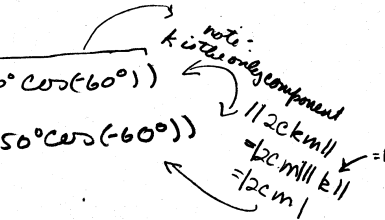 note:
k is the only component
° cos(-60°))
50° cos(-60°))
||2ckm||
=|2cm|||k||
=|2cm|
=